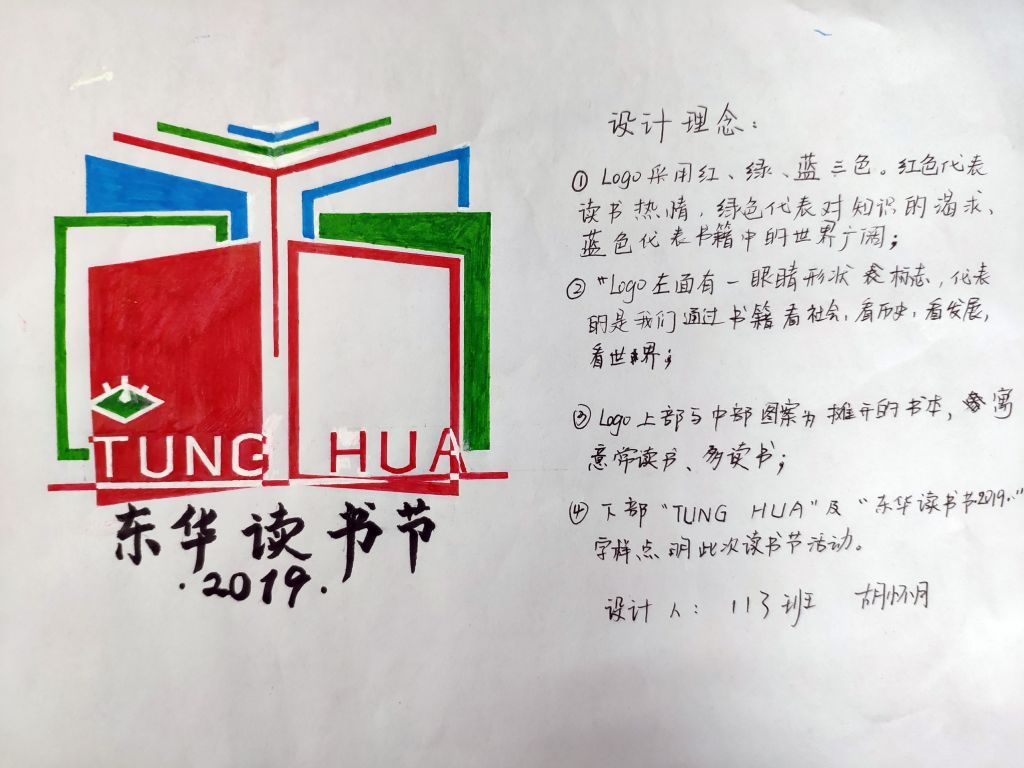 TUNG HUA
东华读书节
·2019·
设计理念：
① Logo采用红、绿、蓝三色。红色代表
读书热情，绿色代表对知识的渴求、
蓝色代表书籍中的世界广阔；
② "Logo左面有一眼睛形状标志，代表
的是我们通过书籍看社会，看历史，看发展，
看世界；
③ Logo上部与中部图案为摊开的书本，寓
意常读书、多读书；
④ 下部"TUNG HUA"及"东华读书节2019."
字样点明此次读书节活动。
设计人：113班 胡怀月